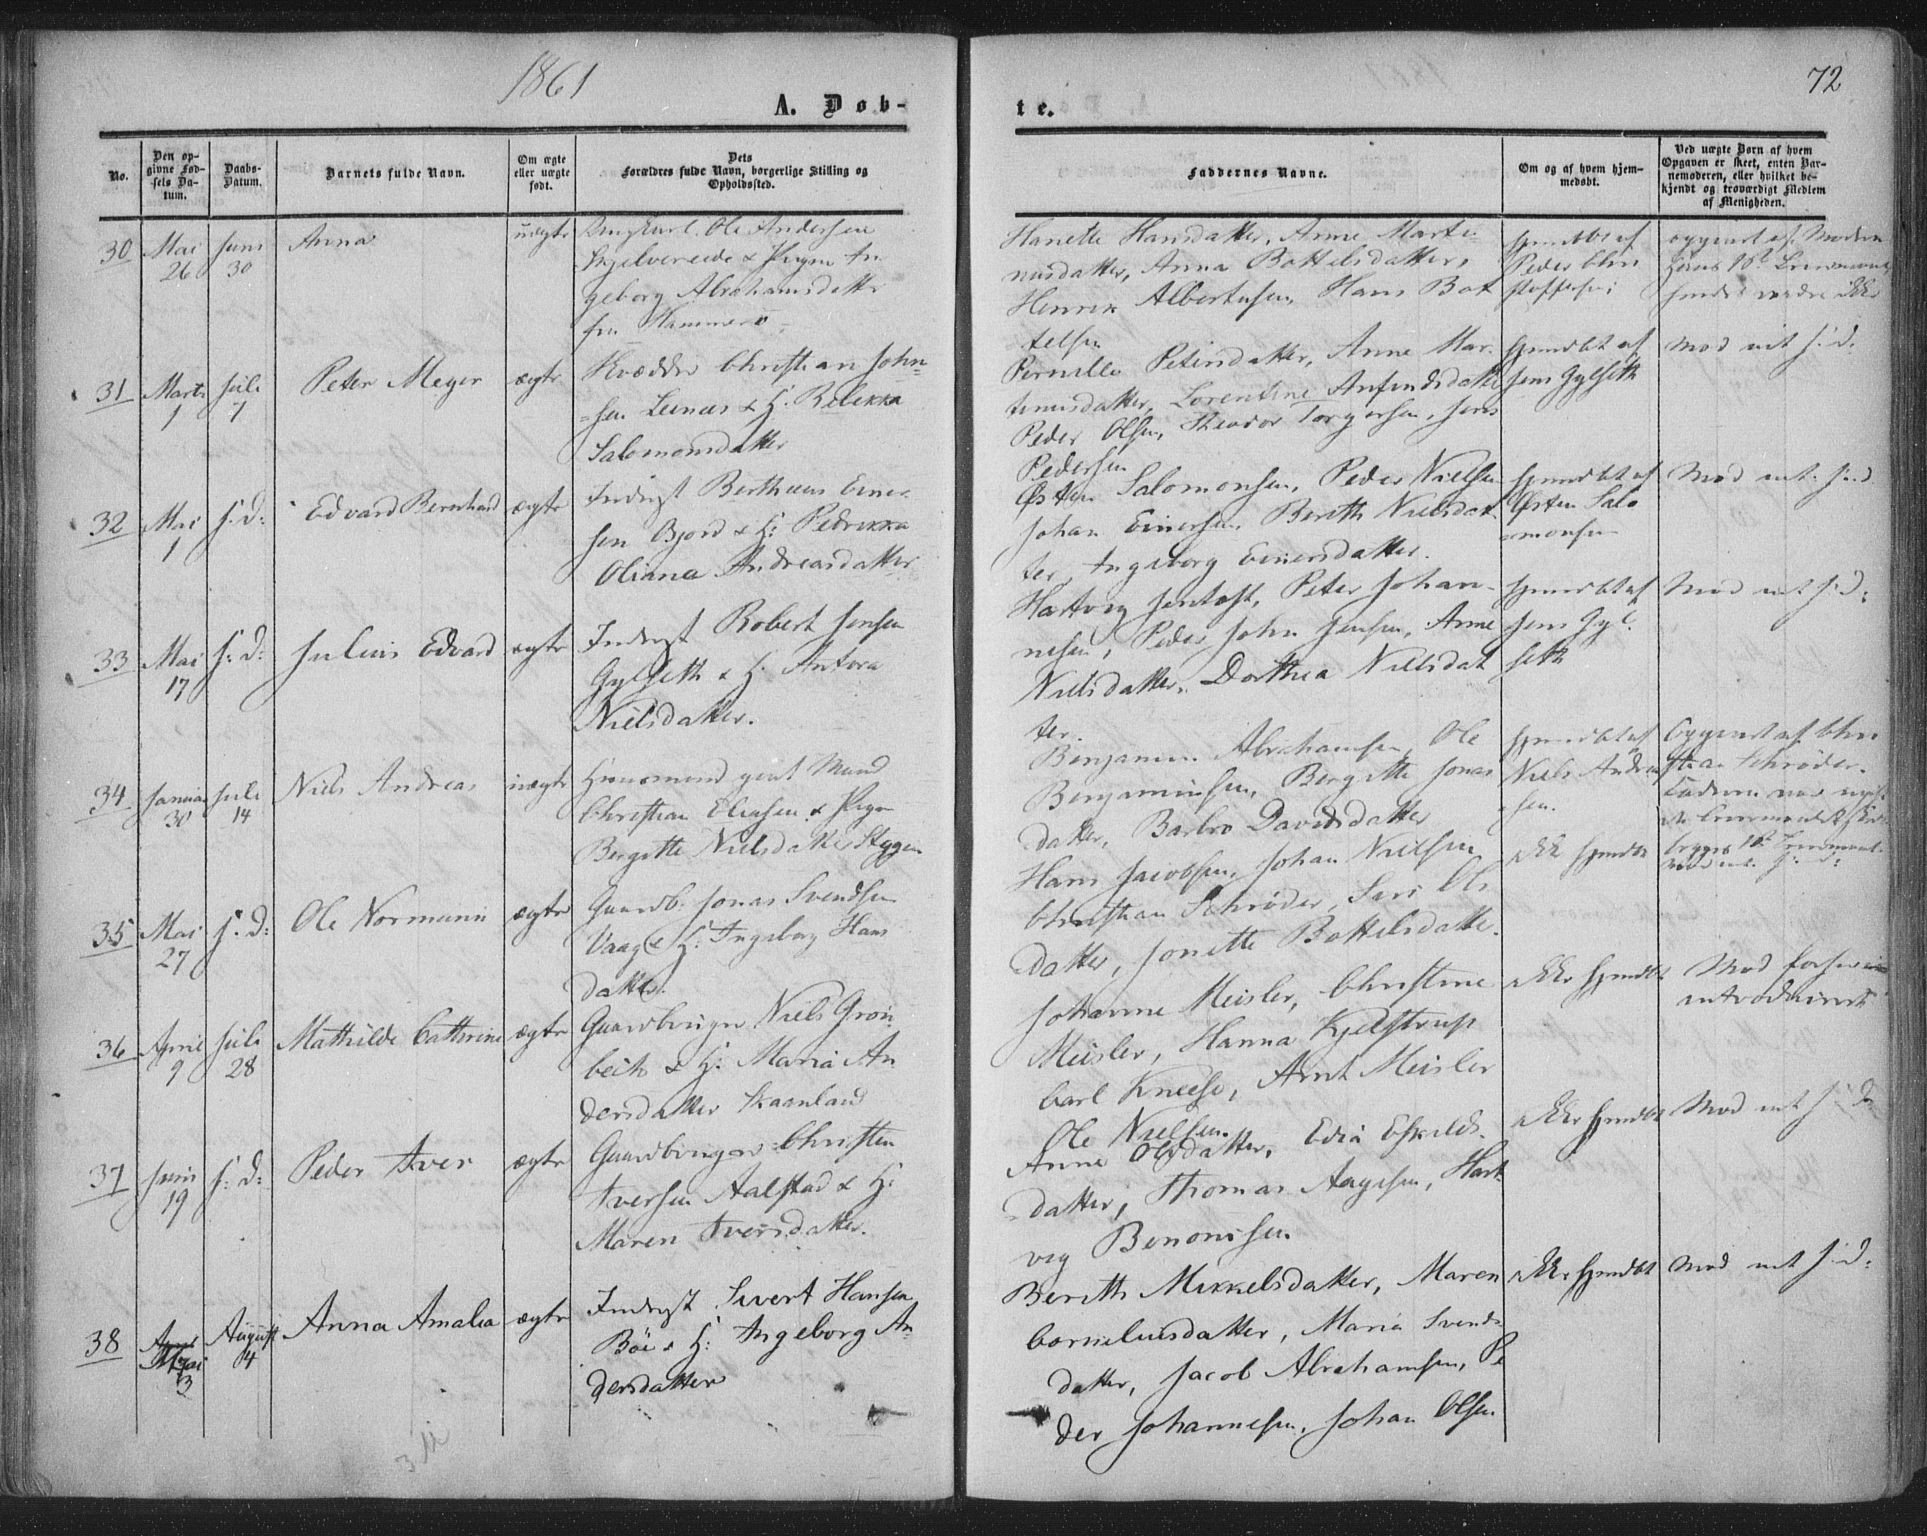 1861
72
A. Døb-
te.
No.
Den op-
givne Fød-
sels Da-
tum.
Daabs-
Datum.
Barnets fulde Navn.
Om ægte
eller uægte
født.
Dets
Forældres fulde Navn, borgerlige Stilling og
Opholdssted.
Faddernes Navne.
Om og af hvem hjem-
medøbt.
Ved uægte Børn af hvem
Opgaven er skeet, enten Bar-
nemoderen, eller hvilket be-
kjendt og troværdigt Medlem
af Menigheden.
30 Mai 26 Juni 30 Anna uægte Ungkarl Ole Andersen
& Pigen In
geborg Abrahamsdatter
fra Hammerø
Hanette Hansdatter, Anne Marti-
nusdatter, Anna Bottelsdatter,
Henrik Albertsen, Hans Bot
telsen
hjemdbt af
Peder Chri
stoffersen
opgivet af Moderen
31 Marts 1 Juli 7 Peter Meyer ægte Kvædde Christian John-
sen Leenæs & H. Rebekka
Salomonsdatter
Pernille Petersdatter, Anne Mar-
tinusdatter, Lorentine Anfindsdatter
Peder Olsen, Theodor Torgersen, Jens
Pedersen
hjemdbt af
Jens Gylseth
Mod int. s. d.
32 Mai 1 s. d: Edvard Bernhard ægte Inderst Bertheus Einer-
sen Bjord & H: Pedrikka
Oliana Andreasdatter
Østen Salomonsen, Peder Nielsen
Johan Einersen, Berith Nielsdat-
ter, Ingeborg Einersdatter.
hjemdbt af
Østen Salo
monsen
Mod int. s. d
33 Mai 17 s: d: Julius Edvard ægte Inderst Robert Jensen
Gylseth & H. Antora
Nielsdatter.
Hartvig Jentoft, Peter Johan-
nesen, Peder John Jensen, Anne
Nielsdatter, Dorthea Nielsdat
ter.
hjemdbt af
Jens Gyl-
seth
Mod int s: d:
34 Januar 30 Juli 14 Niels Andreas uægte Huusmand givt Mand
Christian Eliasen & Pigen
Bergitte Nielsdatter Stygen
Benjamin Abrahamsen, Ole
Benjaminsen, Bergitte Jonas
datter, Barbro Davidsdatter
hjemdbt af
Niels Andrea
sen.
Opgivet af Chri
stian Schrøder.
35 Mai 27 s. d: Ole Normann ægte Gaardb. Jonas Svendsen
Vaag & H: Ingeborg Hans
datter.
Hans Jacobsen, Johan Nielsen
Christian Schrøder, Siri Ols
datter, Jonette Bottelsdatter.
ikke hjemdbt
36 April 9 Juli 28 Mathilde Cathrine ægte Gaardbruger Niels Grøn-
bech & H: Maria An
dersdatter Skaanland
Johanne Meisler, Christine
Meisler, Hanna Kjelstrup
Carl Kneese, Arnt Meisler
Ole Nielsen.
ikke hjemdbt
Mod
introduceret
37 Juni 19 s: d: Peder Iver ægte Gaardbruger Christen
Iversen Aalstad & H:
Maren Iversdatter.
Anne Olsdatter, Edia Eskilds-
datter, Thomas Aagesen, Hart-
vig Benonisen
ikke hjemdbt
Mod int s: d
38 Mai 3 August 4 Anna Amalia ægte Inderst Sivert Hansen
Böe & H: Ingeborg An
dersdatter
Berith Mikkelsdatter, Maren
Corneliusdatter, Maria Svends
datter, Jacob Abrahamsen, Pe
der Johannesen, Johan Olsen
ikke hjemdbt
Mod int s: d: